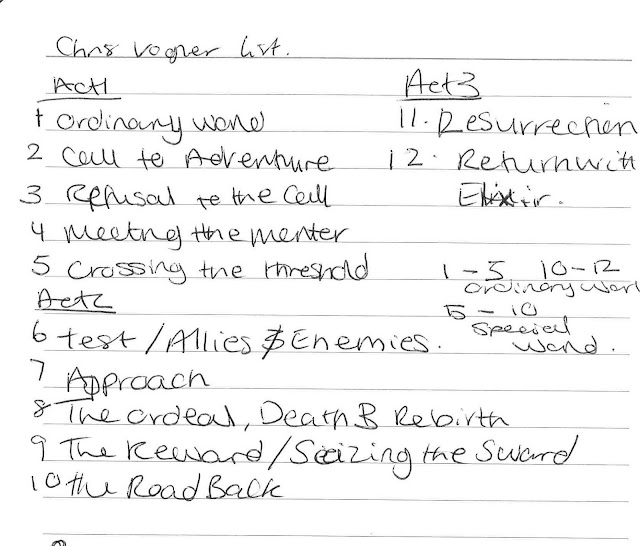 Chris Vogner list.
Act 1
1 Ordinary world
2 Call to Adventure
3 Refusal to the Call
4 Meeting the menter
5 Crossing the threshold
Act 2
6 test / Allies & Enemies.
7 Approach
8 The ordeal, Death & Rebirth
9 The Reward / Seizing the Sword
10 the Road Back
Act 3
11. Resurrection
12. Return with
Elixir.
1 - 5, 10 - 12
Ordinary World
5 - 10
Special
World.